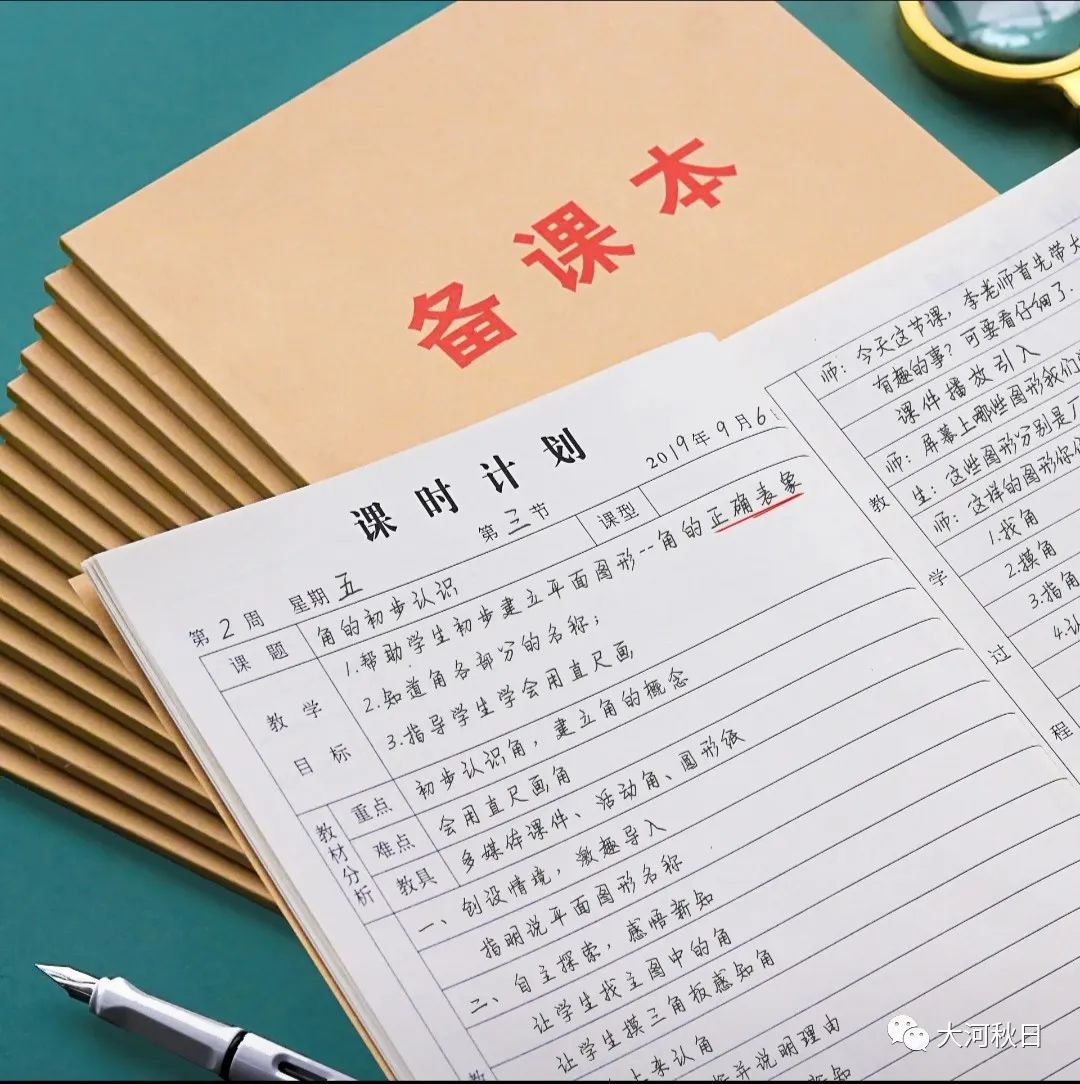 备课本
课时计划
2019年9月6
第2周 星期五 第三节 课型
课题 角的初步认识
教学目标
1.帮助学生初步建立平面图形--角的正确表象
2.知道角各部分的名称；
3.指导学生学会用直尺画
教材分析
重点 初步认识角，建立角的概念
难点 会用直尺画角
教具 多媒体课件、活动角、圆形纸
一、创设情境，激趣导入
指明说平面图形名称
二、自主探索，感悟新知
让学生找主图中的角
让学生摸三角板感知角
上来认角
并说明理由
教
教学过程
师：今天这节课，李老师首先带大
有趣的事？可要看仔细了.
课件播放引入
师：屏幕上哪些图形我们
生：这些图形分别是
师：这样的图形你
1.找角
2.摸角
3.指角
4.认
大河秋日